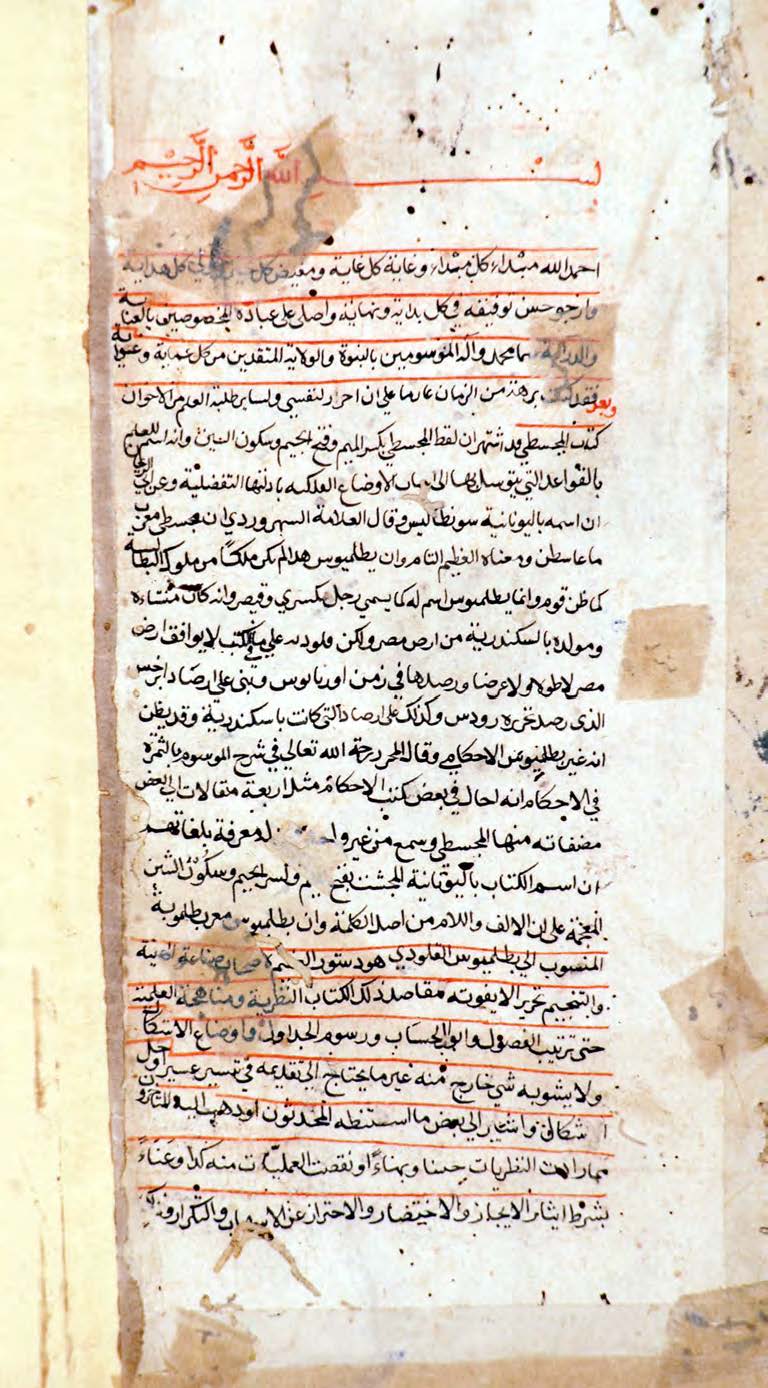 بسم الله الرحمن الرحيم
احمد الله مبتداء كل مبتداء وغاية كل غاية ومفيض كل كل هداية
وارجو حسن توفيقه في كل بداية ونهاية واصلي على عباده المخصوصين بالعناية
محمد وآله الموسومين بالنبوة والولاية المنقذين من كل عماية وغواية
وبعد فقد كنت برهة من الزمان عازما على ان احرر لنفسي ولساير طلبة العلم من الاخوان
كتاب المجسطي قد اشتهر ان لفظ المجسطي بكسر الميم وفتح الجيم وسكون السين وانه اسم للعلم
بالقواعد التي يتوسل بها الى اثبات الاوضاع الفلكية بادلتها التفصلية وعن ابي الريحان
ان اسمه باليونانية سونطاليس وقال العلامة السهروردي ان مجسطي معرب
ماغاسطن ومعناه العظيم التام وان بطلميوس هذا لم يكن ملكا من ملوك البطالسة
كما ظن قوم وانما بطلميوس اسم له كما يسمي رجل بكسري وقيصر وانه كان منشاءه
ومولده بالسكندرية من ارض مصر ولكن الكتب لا يوافق ارض
مصر لا طولا ولا عرضا ورصدها في زمن اوريانوس وبنى على ارصاد ابرخس
الذى رصد بجزيرة رودس وكذلك على ارصاد التي كانت باسكندرية وقد يظن
انه غير بطلميوس الاحكامي وقال المحرر رحمة الله تعالي في شرح الموسوم بالثمرة
في الاحكام انه احال في بعض كتب الاحكام مثل اربعة مقالات الي بعض
مصنفاته منها المجسطي وسمع من غير له معرفة بلغاتهم
ان اسم الكتاب باليونانية المجشت بفتح الميم وكسر الجيم وسكون الشين
المعجمة على ان الالف واللام من اصل الكلمة وان بطلميوس معرب
المنسوب الي بطلميوس القلودي هو دستور اصحاب صناعة الهيئة
والتنجيم تحريرا لا يفوته مقاصد ذلك الكتاب النظرية ومناهجه العلمية
حتى ترتيب الفصول وابواب الحساب ورسوم الجداول واوضاع الاشكال
ولا يشوبه شي خارج منه غير ما يحتاج الي تقديمه في تيسير عسير او حل
اشكال واشير الي بعض ما استنبطه المحدثون او ذهب اليه المتاخرون
مما زادت النظريات حسنا وبهاءً او نقصت العمليات منه كدا وعناءً
بشرط ايثار الايجاز والاختصار والاحتراز عن الاسهاب والتكرار